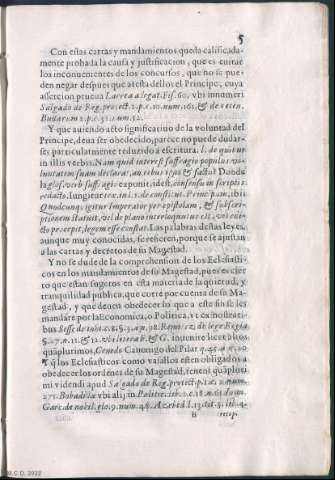 5
Con estas cartas y mandamientos queda calificada-
mente probada la causa y justificacion, que es euitar
los inconuenientes de los concursos, que no se pue-
den negar despues que atesta dellos el Principe, cuya
assercion prueua Larrea alegat. Fis. 60. vbi innumeri
Salgado de Reg. protect. 2. p. c. 10. num. 161. & de reten.
Bullarum 2. p. c. 31. num. 52.
Y que auiendo acto significatiuo de la voluntad del
Principe, deua ser obedecido, parece no puede dudar-
ses particularmente reducido a escritura. l. de quibus
in illis verbis. Nam quid interest suffragio populus vo-
luntatem suam declarat, an rebus ipsis & factis? Donde
la glos. verb. suffragio exponit, idest, consensu in scriptis
redacto, iungitur tex. in l. 1. de constitut. Princip. an, ibi
Quodcunque igitur Imperator per epistolam, & subscri-
ptionem statuit, vel de plano interloquutus est, vel edi-
cto precepit, legem esse constat. Las palabras destas leyes,
aunque muy conocidas, se refieren, porque se ajustan
a las cartas y decretos de su Magestad.
Y no se dude de la comprehension de los Eclesiasti-
cos en los mandamientos de su Magestad, pues es cier
to que estan sugetos en esta materia de la quietud, y
tranquilidad publica, que corre por cuenta de su Ma-
gestad, y que deuen obedecer lo que a este fin se les
mandare por la Economica, o Politica, vt ex nostrati-
bus Sesse de inhi. c. 8. §. 3. n. 98. Remirez de lege Regia
§. 27. n. 11. & 12. vbi litera F. & G. innuente licet alios
quaplurimos, Canonigo del Pilar q. 45. n. 50.
Y q los Eclesiasticos como vasallos esten obligados a
obedecer los ordenes de su Magestad, tenent quapluri
mi videndi apud Salgado de Reg. protect. p. 1. c. 2. num.
271. Bobadilla vbi alij in Politic. lib. 2. c. 18. n. 61. do m
Garc. de nobil. glo. 9. num. 48. Azebed. l. 13. tit. 3. lib. 4.
B recop.
M.C.D. 2022